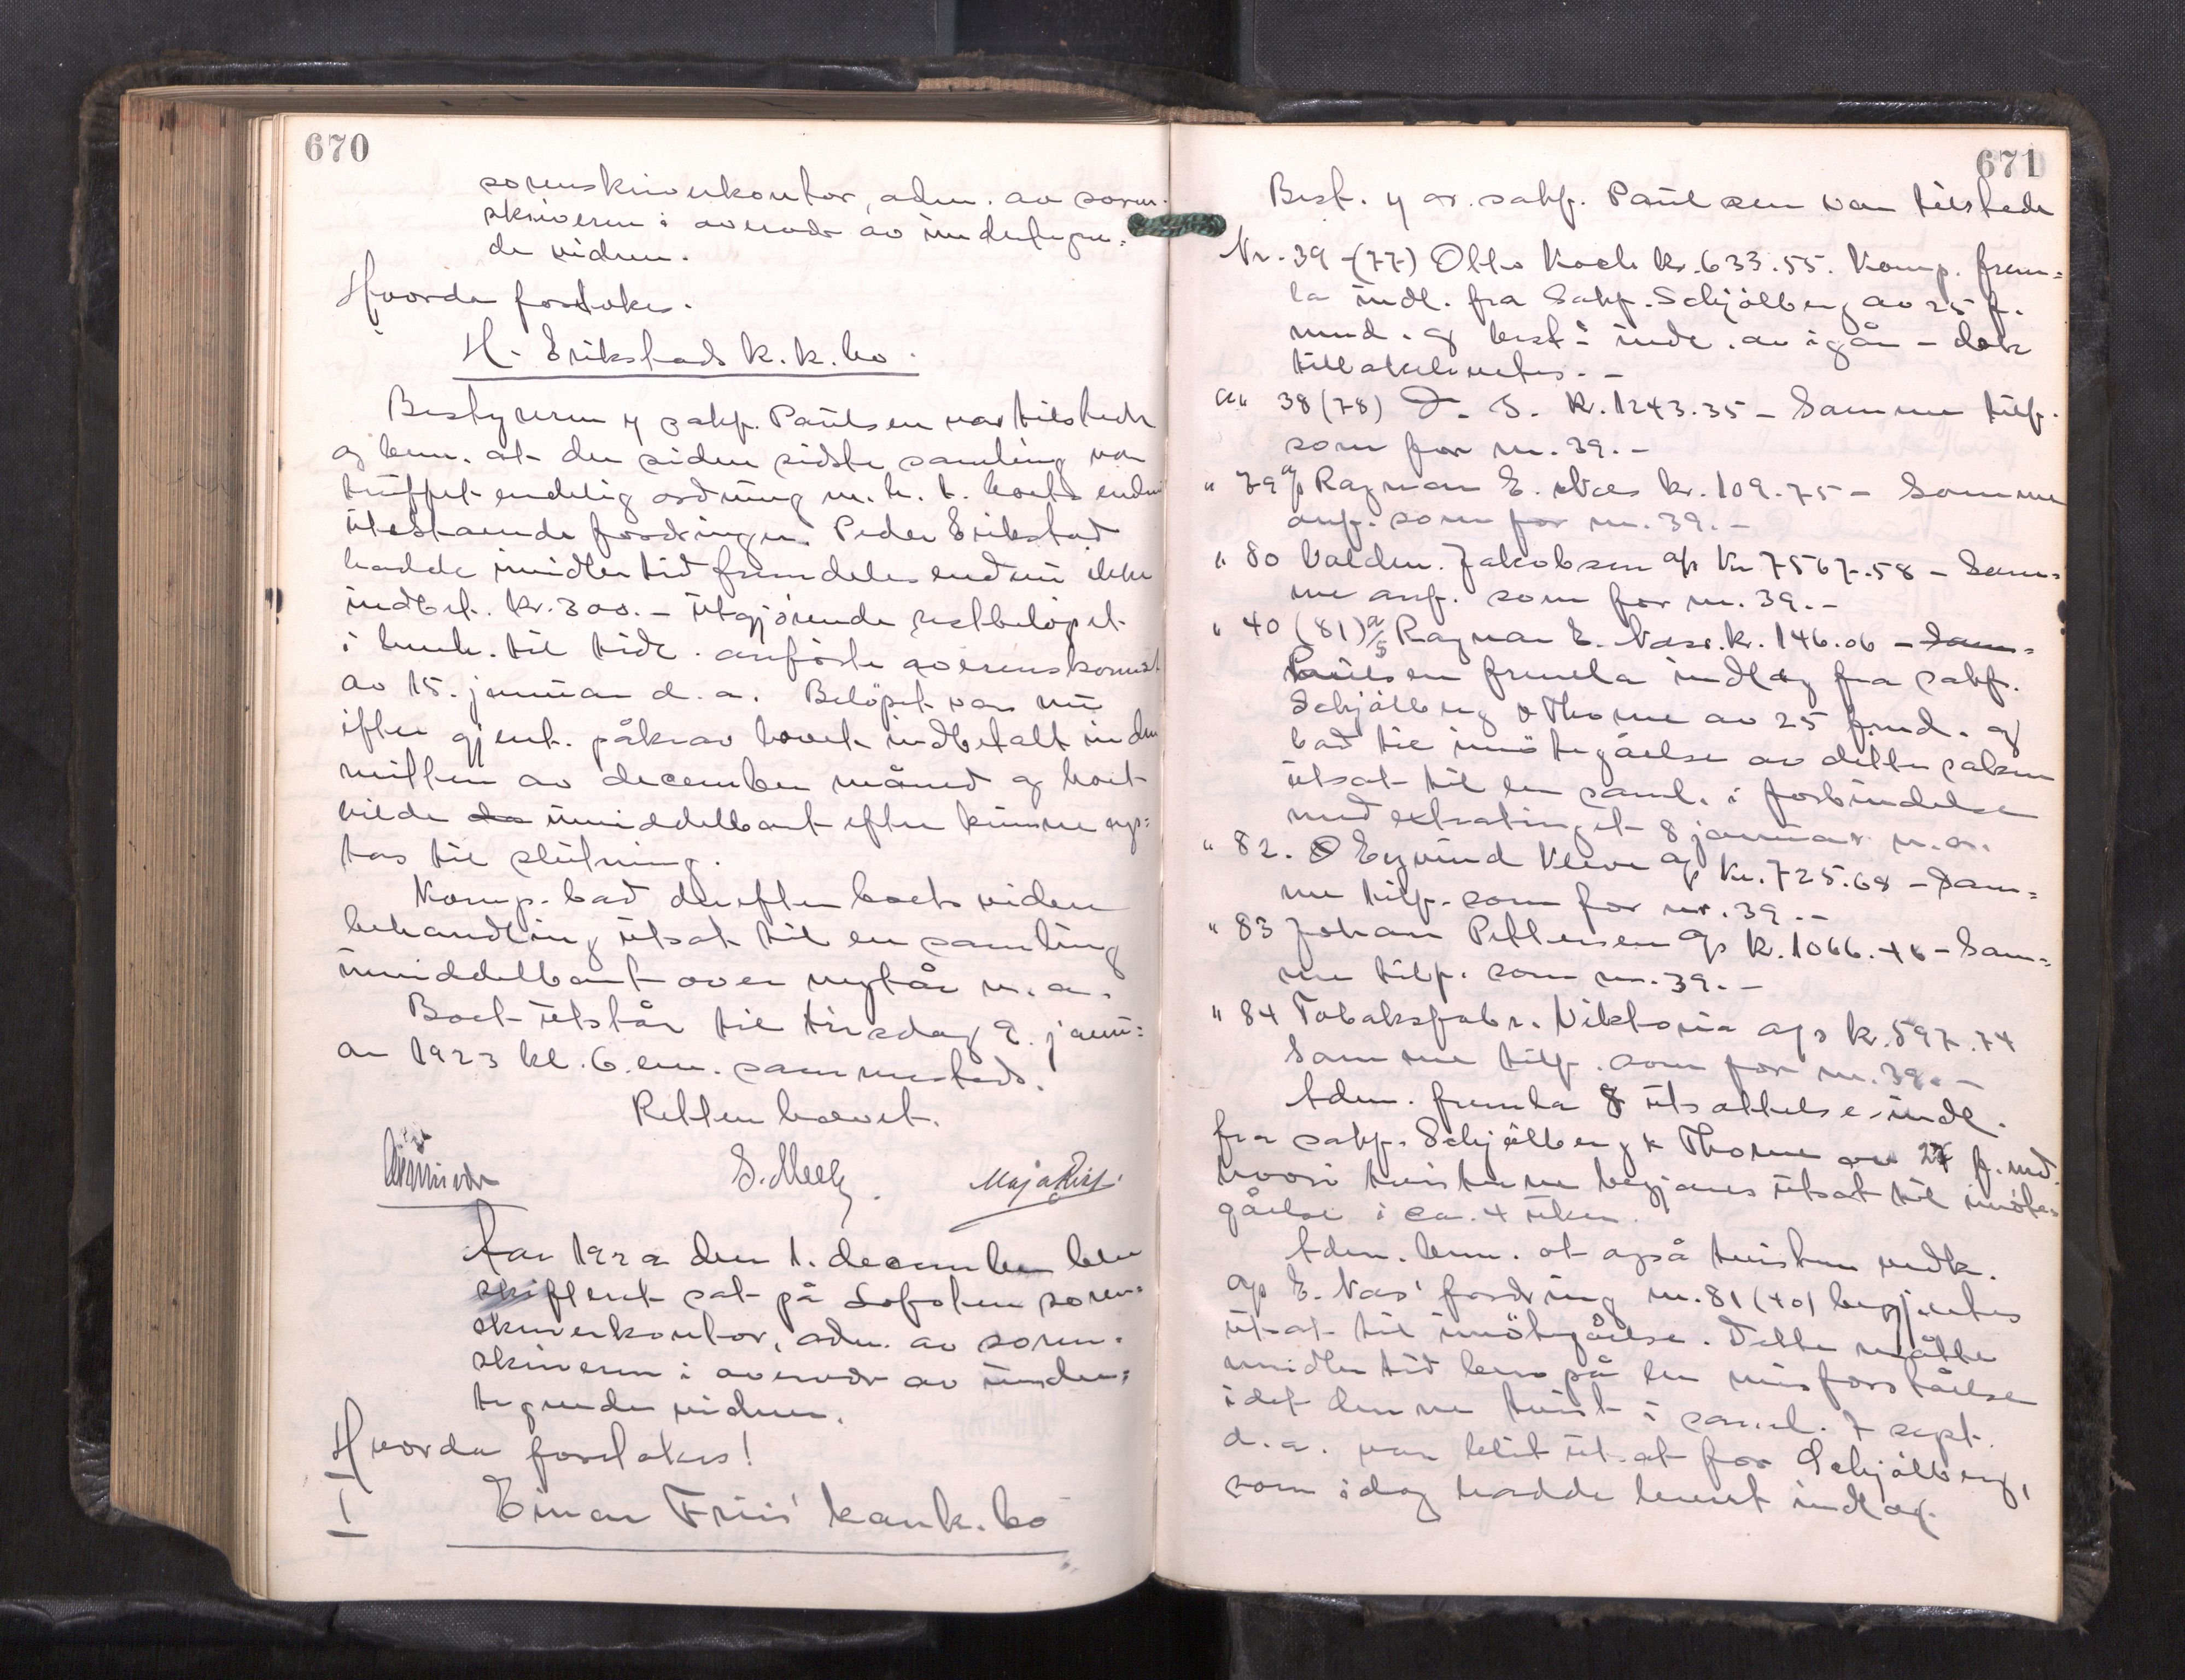 670
sorenskriverkontor, adm. av soren-
skriveren i overvær av undertegne=
de vidner.
Hvorda foretokes.
H. Erikstads k.k.bo.
Bestyreren og sakf. Paulsen var tilstede
og bem. at der siden sidste samling var
truffet endelig ordning m.h.t. boets endnu
utestaaende fordringer. Peder Erikstad
hadde imidlertid fremdeles endnu ikke
indbet. kr. 300.- utgjørende restbeløpet
i henh. til tidl. anførte overenskomst
av 15. januar d.a. Beløpet var nu
efter gjent. påkrav lovet indbetalt inden
midten av december måned og boet
vilde umiddelbart efter kunne op=
tas til slutning.
Komp. bad derefter boets videre
behandling utsat til en samling
umiddelbart over nytår n.a.
Boet utstår til tirsdag 9. janu=
ar 1923 kl. 6 em. sammesteds.
Retten hævet.
S. Meely.
Maja Riis
Aar 1922 den 1. december blev
skifteret sat på Lofoten soren=
skriverkontor, adm. av soren-
skriveren i overvær av under=
tegnede vidner.
Hvorda foretokes!
I
Einar Friis' konk.bo
671
Best. og or. sakf. Paulsen var tilstede
Nr. 39 - (77) Otto Koch kr. 633.55. Komp. frem=
la indl. fra Sakf. Schjølberg av 25 f.
mnd. og best.s indl. av igår - dok
tilbakelevertes. -
" 38 (78) D. S. kr. 1243.35 - Samme tilf.
som for nr. 39. -
" 79 a/s Ragnar E. Næs kr. 109.75 - Samme
anf. som for nr. 39. -
" 80 Valdem. Jakobsen a/s kr 7567.58 - Sam=
me anf. som for nr. 39. -
" 40 (81) a/s Ragnar E. Næss. kr. 146.06 - Sam=
Paulsen fremla indlæg fra sakf.
Schjølberg & Thorne av 25 f.md. og
bad til imøtegåelse av dette saken
utsat til en saml. i forbindelse
med extratinget 8 januar n.a.
" 82. Eyvind Kleve a/s kr. 725.68 - Sam=
me tilf. som for nr. 39. -
" 83 Johan Pettersen a/s k. 1066.46 - Sam=
me tilf. som nr. 39. -
" 84 Tobaksfabr. Viktoria a/s k. 597.74
Samme tilf. som for nr. 39. -
Adm. fremla 8 utsættelsesindl.
fra sakf. Schjølberg & Thorne av 27 f.md.
hvori tvisterne begjæres utsat til imøte=
gåelse i ca. 4 uker.
Adm. bem. at også tvisten vedk.
a/s E. Næs' fordring nr. 81 (40) begjærtes
utsat til imøtegåelse. Dette måtte
imidlertid bero på en misforståelse
idet denne tvist i saml. 7 sept.
d.a. var blit utsat for Schjølberg,
som idag hadde levert indlæg.